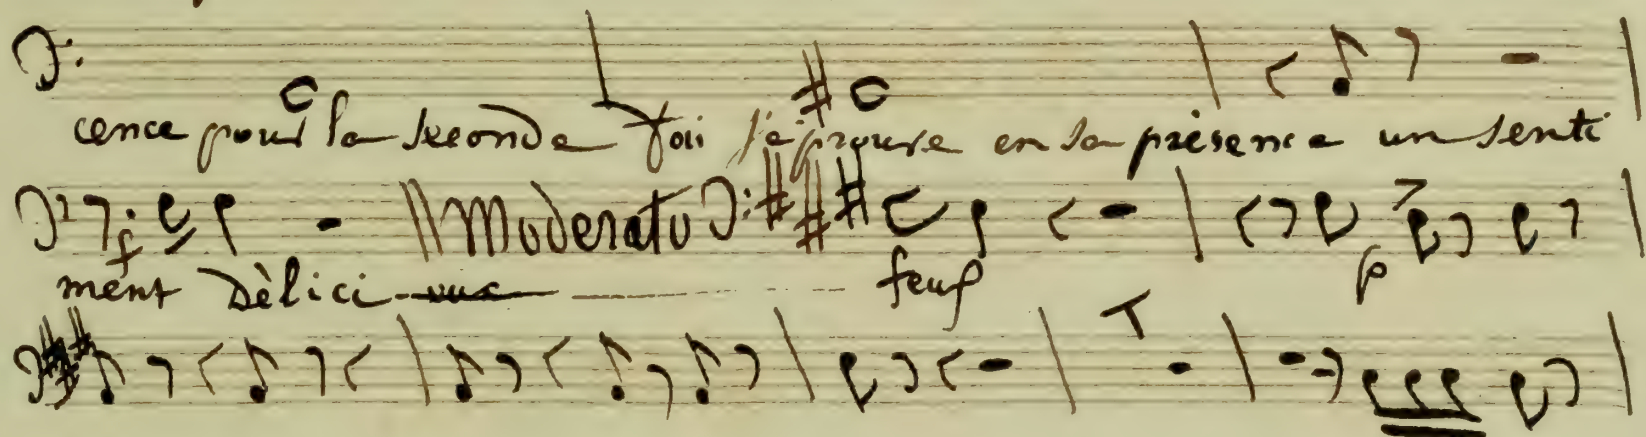 cence pour la seconde foi j'éprouve en sa présence un senti
Moderato
ment Dèlici-eux feuf
p